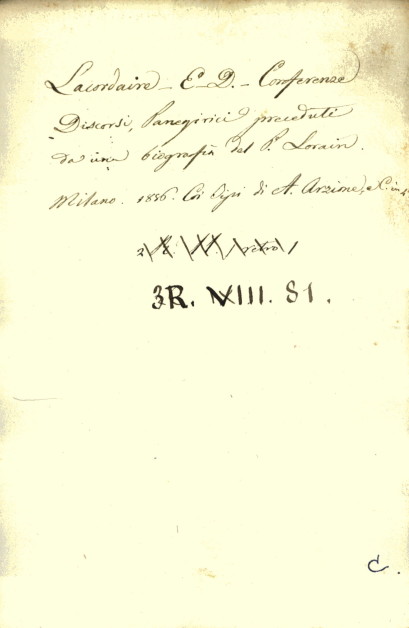 Lacordaire - E. D. - Conferenze
Discorsi, Panegirici preceduti
da una biografia del P. Lorain.
Milano. 1856. Coi Tipi di A. Arzione, e C. in
3R. VIII. 81.
C.